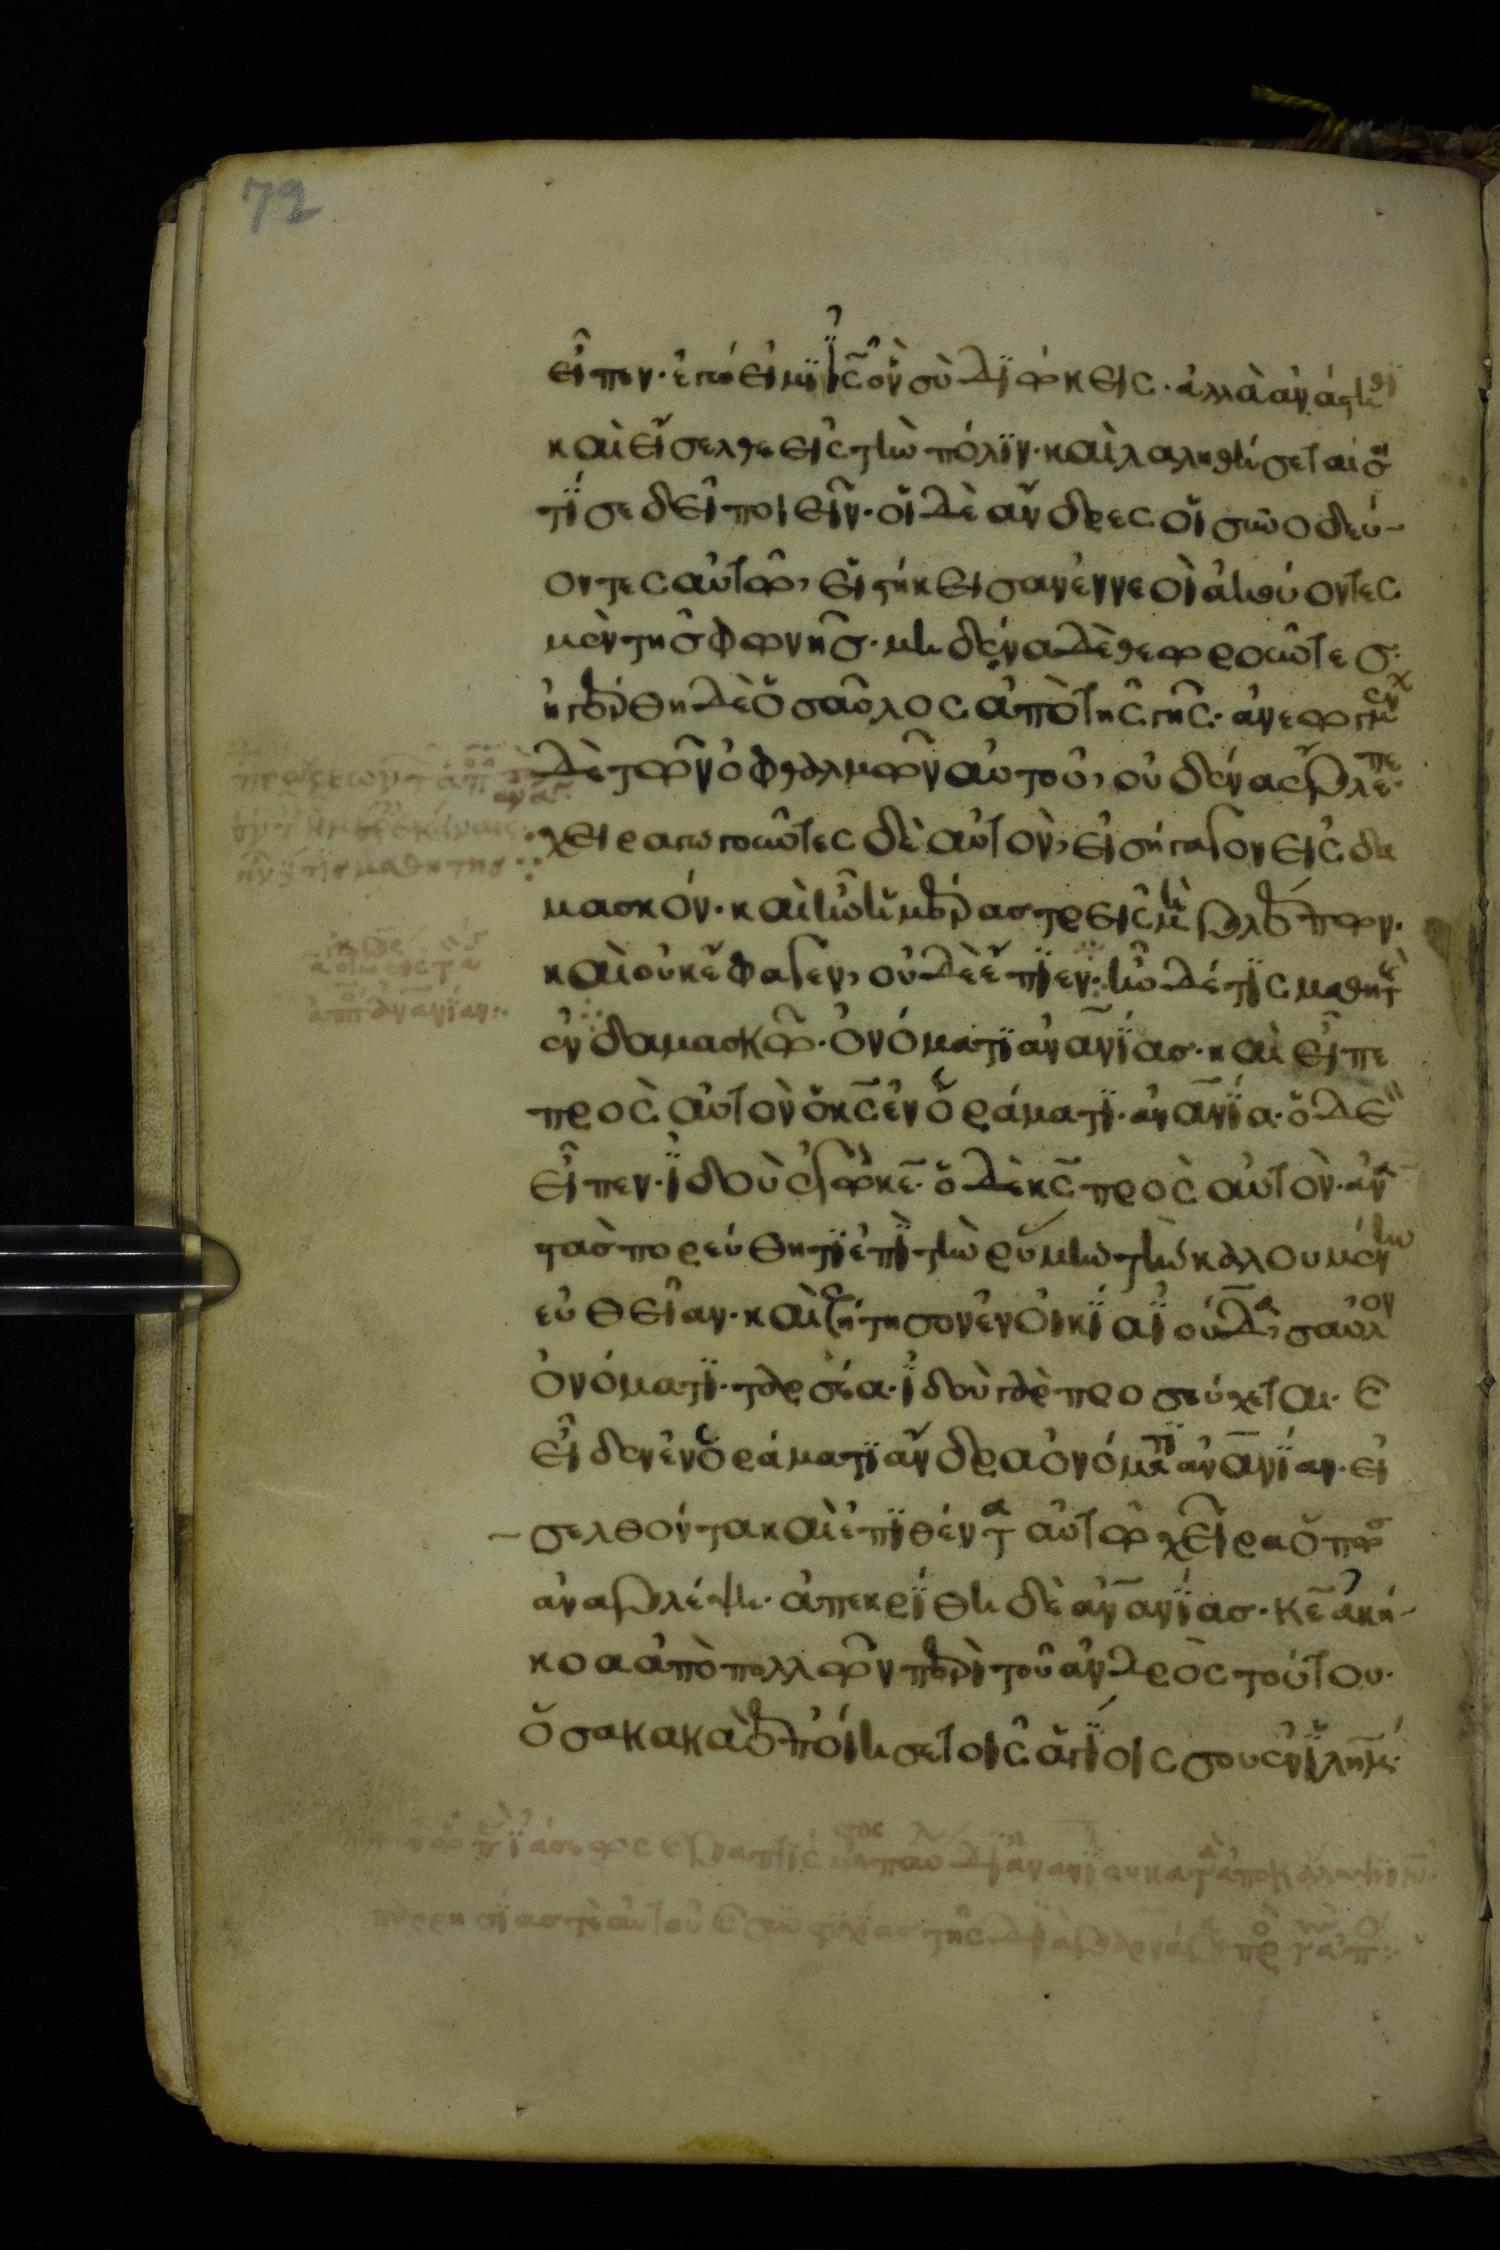 72
εἶπεν· ἐγώ εἰμϊ ϊ̅ς̅ ὃν σὺ δϊώκεις· ἀλλὰ ἀνάστηθϊ
καὶ εἴσελθε εἰς τὴν πόλϊν· καὶ λαληθήσεταί σοι
τΐ σε δεῖ ποιεῖν· οἱ δὲ ἄνδρες οἱ συνοδεύ-
οντες αὐτῶ, εἱστήκεισαν ἐννεοὶ ἀκούοντες
μὲν τῆς φωνῆς· μηδένα δὲ θεωροῦντες·
ἠγέρθη δὲ ὁ σαῦλος ἀπὸ τῆς γῆς· ἀνεωγμένων
δὲ τῶν ὀφθαλμῶν αὐτοῦ, οὐδένα ἔβλεπε·
χειραγωγοῦντες δὲ αὐτὸν, εἰσήγαγον εἰς δα
μασκόν· καὶ ἦν ἡμέρας τρεῖς μὴ βλέπων·
καὶ οὐκ ἔφαγεν, οὐδὲ ἔπϊεν· ἦν δέ τϊς μαθητὴς
ἐν δαμασκῶ· ὀνόματϊ ἀνανΐας· καὶ εἶπε
πρὸς αὐτὸν ὁ κ̅ς̅ ἐν ὁράματϊ· ἀνανΐα· ὁ δὲ
εἶπεν· ϊ̓δοὺ ἐγὼ κ̅ε̅· ὁ δὲ κ̅ς̅ πρὸς αὐτὸν· ἀνα
στὰς πορεύθητϊ ἐπῒ τὴν ῥύμην τὴν καλουμένην
εὐθεῖαν· καὶ ζήτησον ἐν οἰκΐαϊ ϊ̓ούδα, σαῦλον
ὀνόματϊ· ταρσέα· ϊ̓δοὺ γὰρ προσεύχεται· κ
εἶδεν ἐν ὁράματϊ ἄνδρα ὀνόματϊ ἀνανΐαν· εἰ
σελθόντα καὶ ἐπϊθέντα αὐτῶ χεῖρα ὅπως
ἀναβλέψη· ἀπεκρΐθη δὲ ἀνανΐας· κ̅ε̅ ἀκή-
κοα ἀπὸ πολλῶν περὶ τοῦ ἀνδρὸς τούτου·
ὅσα κακὰ ἐποίησε τοῖς ἁγΐοις σου ἐν ϊ̓λη̅μ·